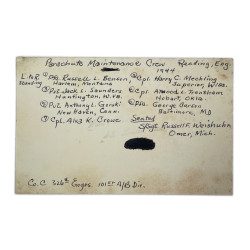 Parachute Maintenance Crew Reading, Eng.
1944
L. to R.
Standing
① Pfc Russell L. Benson,
Harlem, Montana
② Pvt. Jack L. Saunders
Huntington, W.Va.
③ Pvt. Anthony L. Gorski
New Haven, Conn.
④ Cpl. Alva R. Crowe
⑤ Cpl. Harry C. Mechling
Superior, Wis.
⑥ Cpl. Armond L. Trentham
Hobart, Okla.
⑦ Pvt. George Carson
Baltimore, Md
Seated
S/Sgt. Russell F. Weishuhn
Omer, Mich.
Co. C 326th Engrs 101st A/B Div.